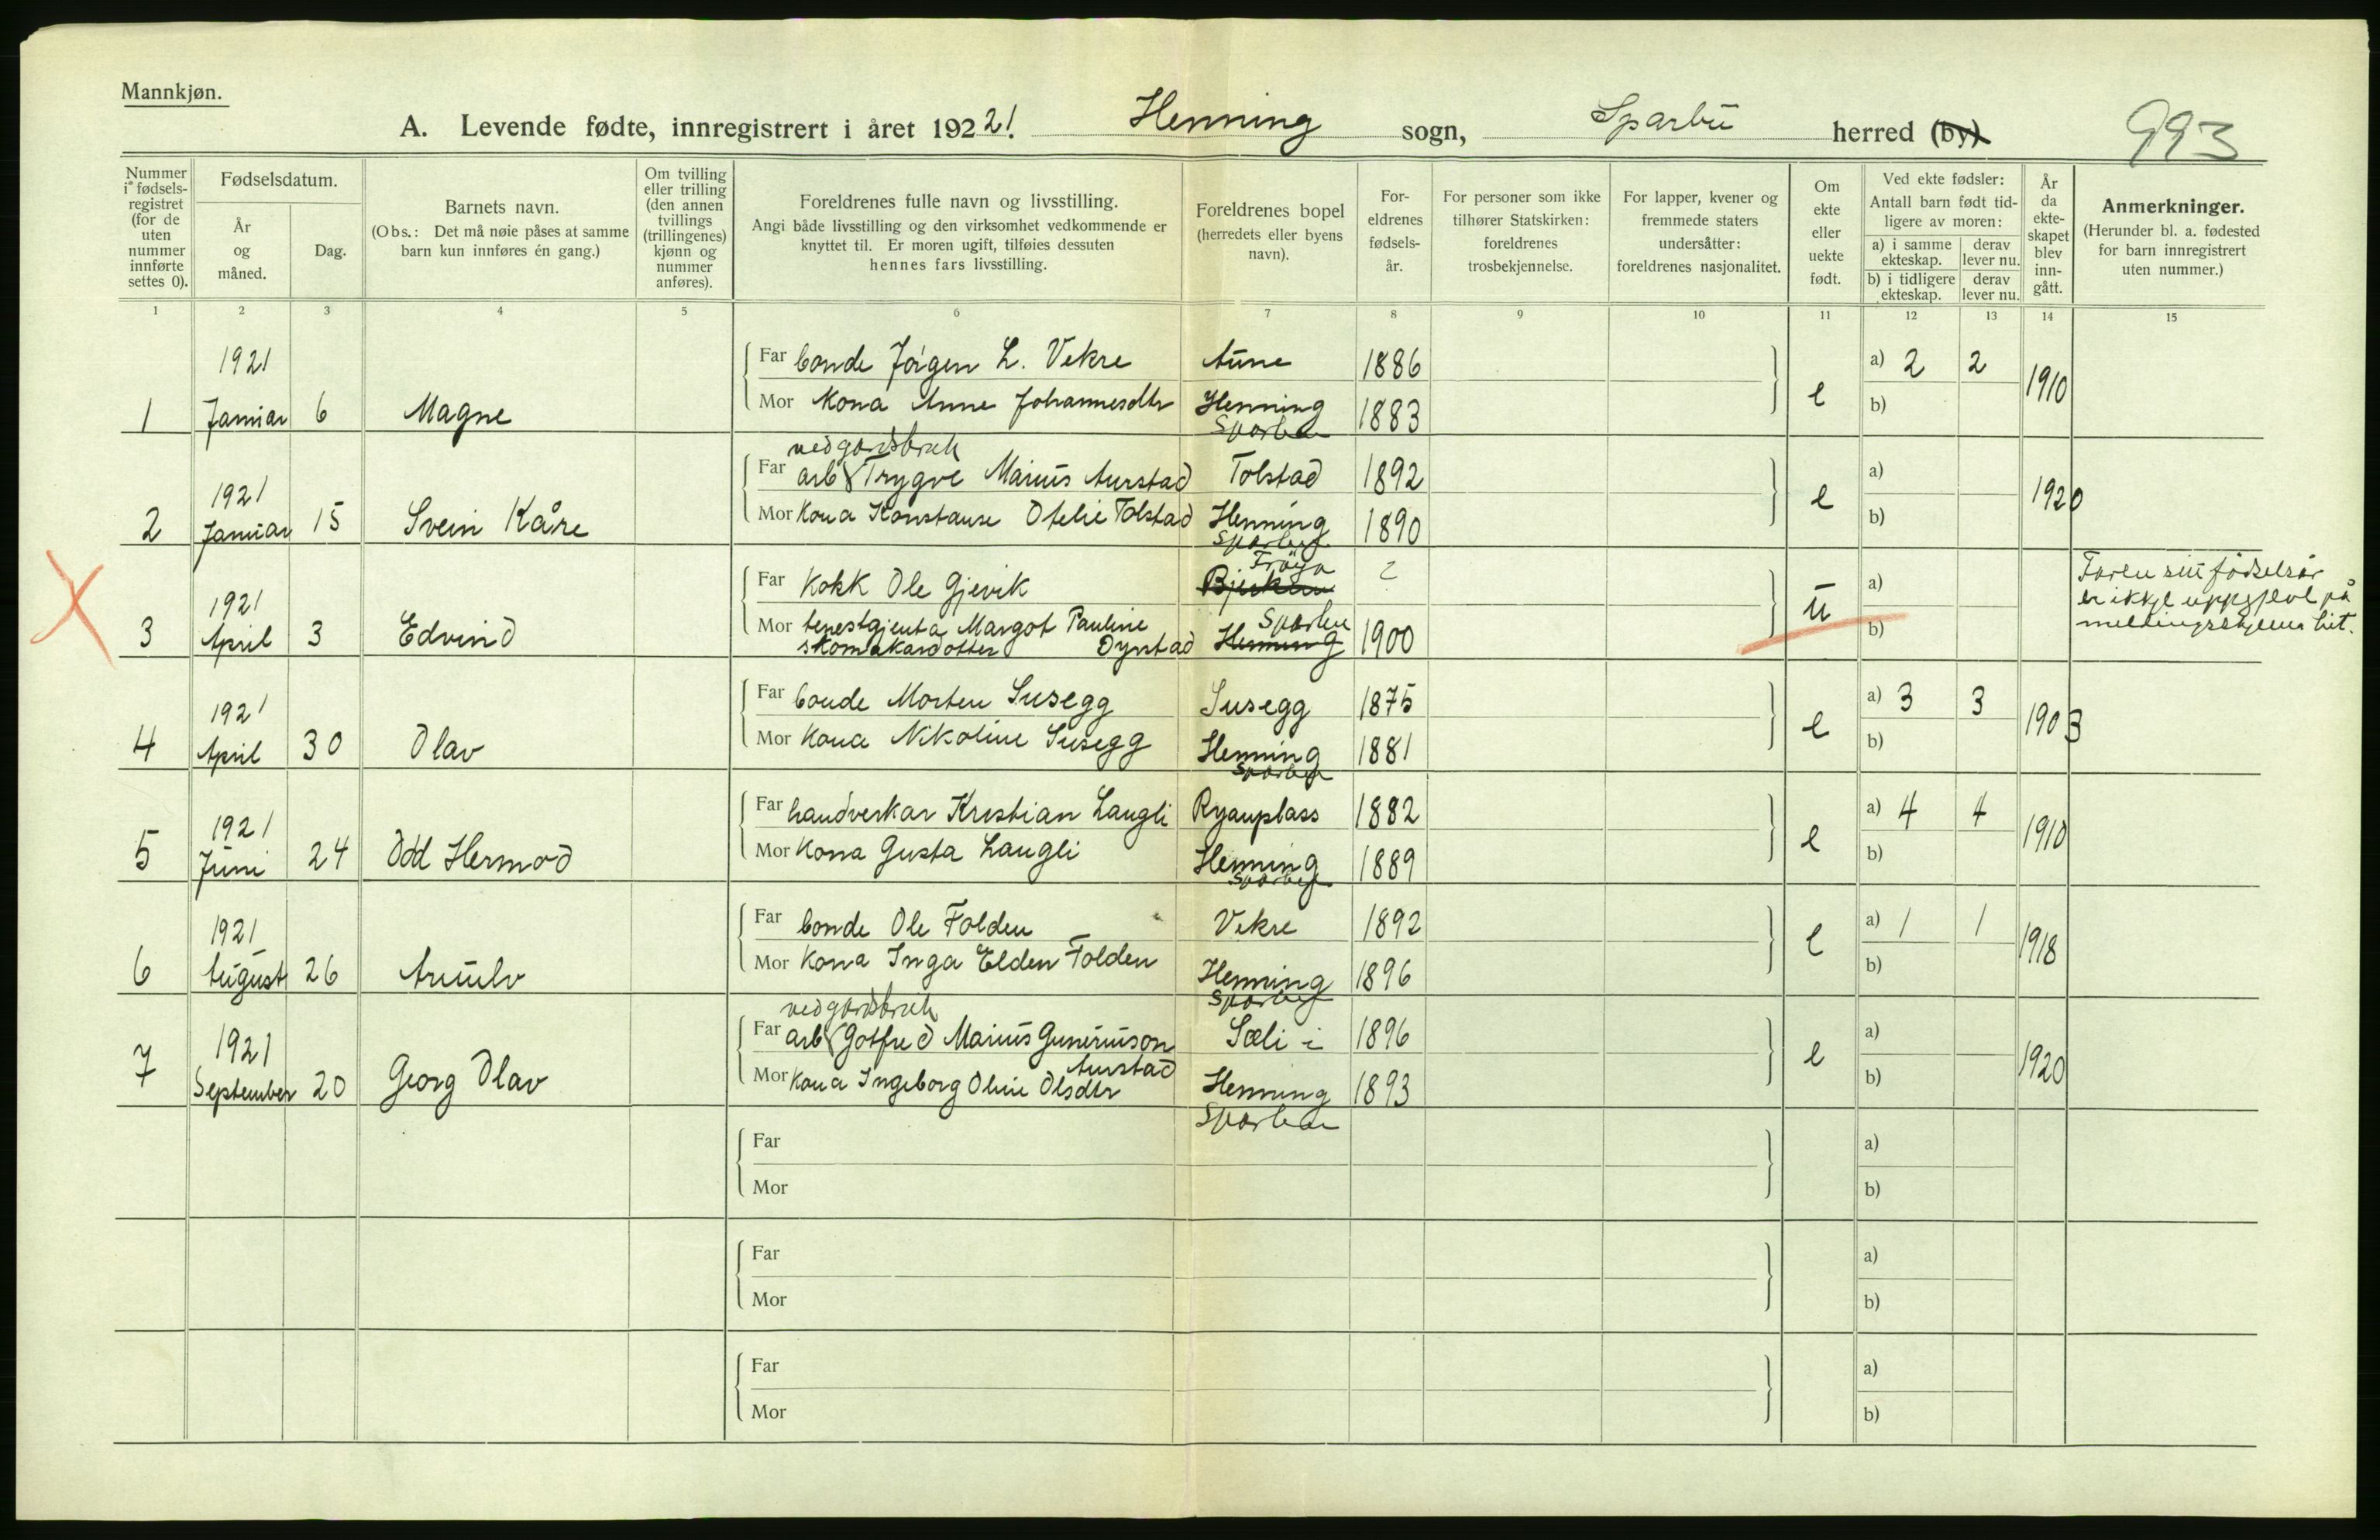 Mannkjøn.
A. Levende fødte, innregistrert i året 192 21. Henning sogn, Sparbu herred (by) 993
Nummer i fødsels-registret (for de uten nummer innførte settes 0).
Fødselsdatum.
År og måned.
Dag.
Barnets navn.
(Obs.: Det må nøie påses at samme barn kun innføres én gang.)
Om tvilling eller trilling (den annen tvillings (trillingenes) kjønn og nummer anføres).
Foreldrenes fulle navn og livsstilling.
Angi både livsstilling og den virksomhet vedkommende er knyttet til. Er moren ugift, tilføies dessuten hennes fars livsstilling.
Foreldrenes bopel (herredets eller byens navn).
For-eldrenes fødsels-år.
For personer som ikke tilhører Statskirken: foreldrenes trosbekjennelse.
For lapper, kvener og fremmede staters undersåtter: foreldrenes nasjonalitet.
Om ekte eller uekte født.
Ved ekte fødsler: Antall barn født tid-ligere av moren:
a) i samme ekteskap. derav lever nu.
b) i tidligere ekteskap. derav lever nu.
År da ekte-skapet blev inn-gått.
Anmerkninger.
(Herunder bl. a. fødested for barn innregistrert uten nummer.)
1 2 3 4 5 6 7 8 9 10 11 12 13 14 15
1921 Far bonde Jørgen L. Vekre Aune 1886 a) 2 2
1 Januar 6 Magne Mor Kona Anne Johannesdtr Henning Sparbu 1883 e b) 1910
ved gardsbruk
Far arb Trygve Marius Aurstad Tolstad 1892 a)
1921
2 Januar 15 Svein Kåre Mor Kona Konstanse Otelie Tolstad Henning Sparbu 1890 e b) 1920
Far Kokk Ole Gjevik Frøya ? a)
1921
3 April 3 Edvind Mor tenestgjenta Margot Pauline Sparbu Henning 1900 u b)
skomakardotter Dyrstad
Faren sitt fødselsår
er ikkje uppgjeve på
meldingsskjema hit.
Far bonde Morten Susegg Susegg 1875 a) 3 3
1921
4 April 30 Olav Mor Kona Nikoline Susegg Henning Sparbu 1881 e b) 1903
Far handverkar Kristian Langli Ryanplass 1882 a) 4 4
1921
5 Juni 24 Odd Hermod Mor Kona Gusta Langli Henning Sparbu 1889 e b) 1910
Far bonde Ole Folden Vekre 1892 a) 1 1
1921
6 August 26 Arnulv Mor Kona Inga Elden Folden Henning Sparbu 1896 e b) 1918
ved gardsbruk
Far arb Gotfred Marius Guneriuson Sæli i 1896 a)
Aurstad
1921
7 September 20 Georg Olav Mor Kona Ingeborg Oline Olsdtr Henning 1893 e b) 1920
Sparbu
Far a)
Mor b)
Far a)
Mor b)
Far a)
Mor b)